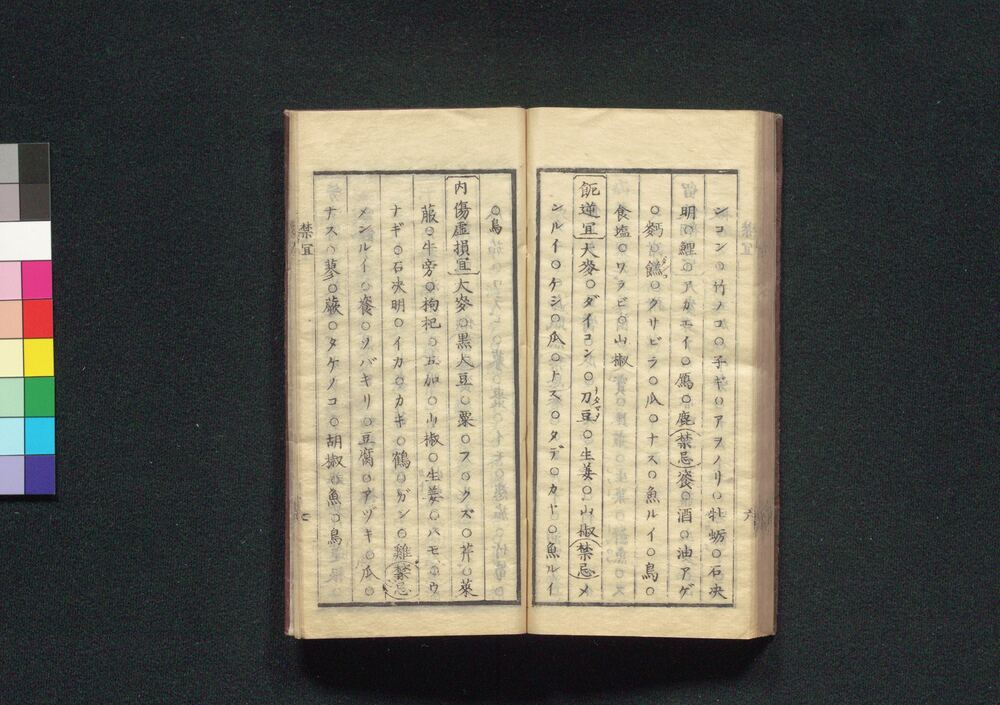 シコン○竹ノコ○子ギ○アヲノリ○牡蛎○石决
明○鯉○アカエイ○鴈○鹿禁忌餈○酒○油アゲ
○麪○饂○クサビラ○瓜○ナス○魚ルイ○鳥○
食塩○ワラビ○山椒
呃逆宜大麥○ダイコン○刀豆○生姜○山椒禁忌メ
ンルイ○ケシ○瓜○ナス○タデ○カヤ○魚ルイ
○鳥
内傷虚損宜大麥○黒大豆○粟○フ○クズ○芹○萊
菔○牛旁○枸杞○五加○山椒○生姜○ハモ○ウ
ナギ○石决明○イカ○カキ○鶴○ガン○雞禁忌
メンルイ○餈○ソバキリ○豆腐○アヅキ○瓜○
ナス○蓼○蕨○タケノコ○胡椒○魚○鳥
禁宜
禁宜
六
七